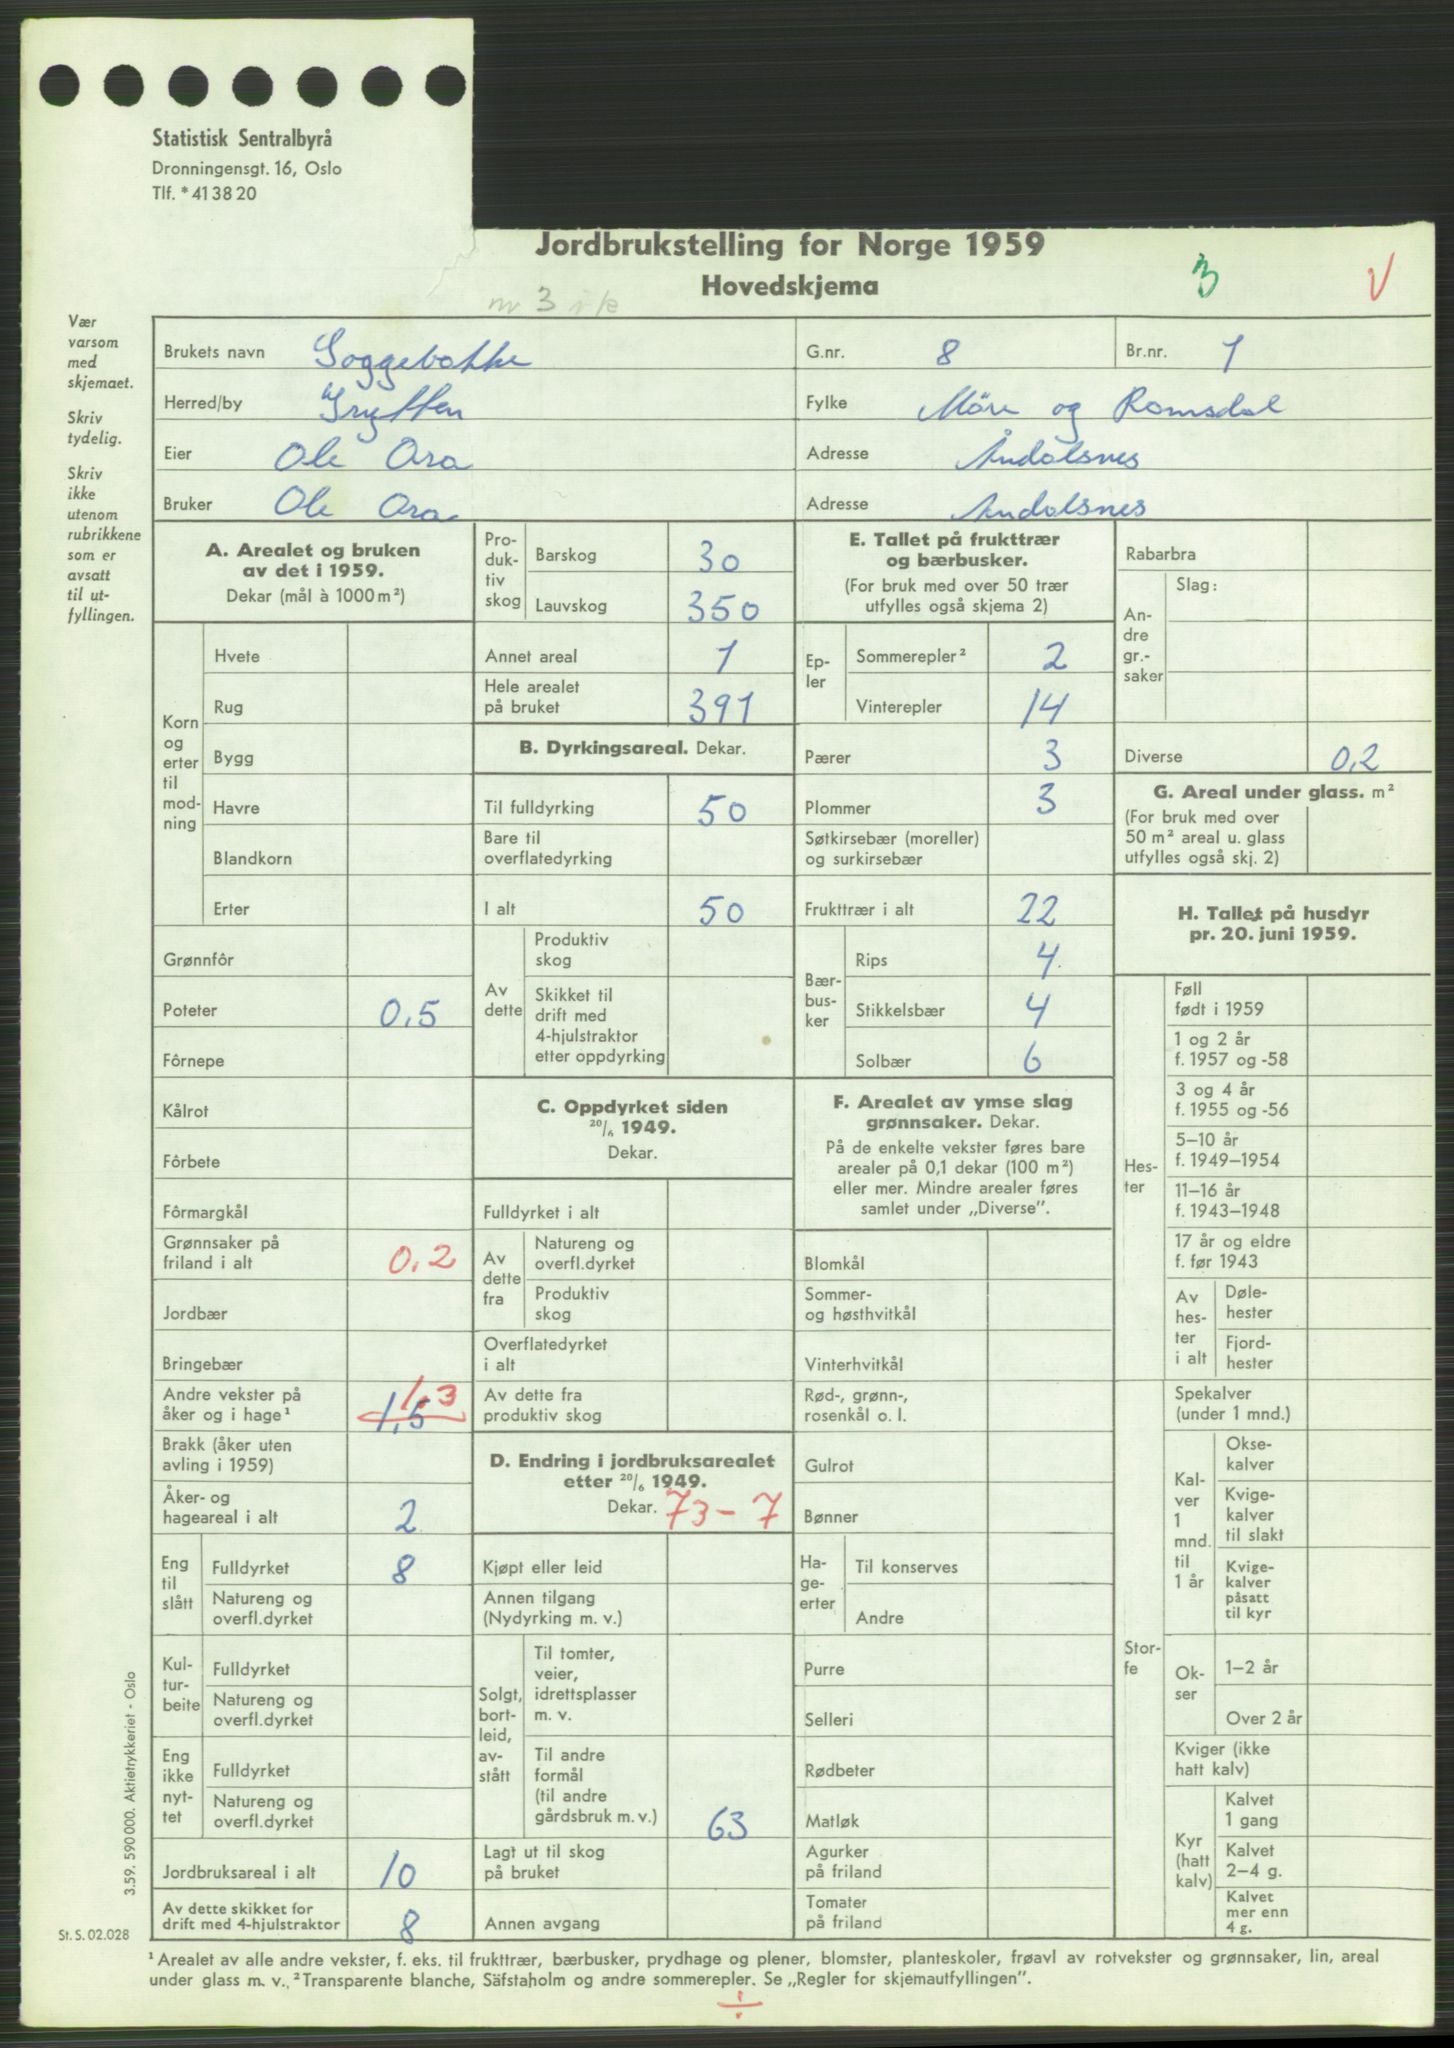 Statistisk Sentralbyrå
Dronningensgt. 16, Oslo
Tlf. * 41 38 20
Jordbrukstelling for Norge 1959
Hovedskjema
3
V
nr 3 i k
Vær
varsom
med
skjemaet.
Skriv
tydelig.
Skriv
ikke
utenom
rubrikkene
som er
avsatt
til ut-
fyllingen.
Brukets navn Soggebakke G.nr. 8 Br.nr. 1
Herred/by Grytten Fylke Möre og Romsdal
Eier Ole Ora Adresse Åndalsnes
Bruker Ole Ora Adresse Åndalsnes
A. Arealet og bruken
av det i 1959.
Dekar (mål à 1000 m²)
Korn
og
erter
til
mod-
ning
Hvete
Rug
Bygg
Havre
Blandkorn
Erter
Grønnfôr
Poteter 0,5
Fôrnepe
Kålrot
Fôrbete
Fôrmargkål
Grønnsaker på
friland i alt 0,2
Jordbær
Bringebær
Andre vekster på 1,3
åker og i hage¹ 1,5
Brakk (åker uten
avling i 1959)
Åker- og
hageareal i alt 2
Eng
til
slått
Fulldyrket 8
Natureng og
overfl.dyrket
Kul-
tur-
beite
Fulldyrket
Natureng og
overfl.dyrket
Eng
ikke
nyt-
tet
Fulldyrket
Natureng og
overfl.dyrket
Jordbruksareal i alt 10
Av dette skikket for
drift med 4-hjulstraktor 8
Pro-
duk-
tiv
skog
Barskog 30
Lauvskog 350
Annet areal 1
Hele arealet
på bruket 391
B. Dyrkingsareal. Dekar.
Til fulldyrking 50
Bare til
overflatedyrking
I alt 50
Av
dette
Produktiv
skog
Skikket til
drift med
4-hjulstraktor
etter oppdyrking
C. Oppdyrket siden
20/6 1949.
Dekar.
Fulldyrket i alt
Av
dette
fra
Natureng og
overfl.dyrket
Produktiv
skog
Overflatedyrket
i alt
Av dette fra
produktiv skog
D. Endring i jordbruksarealet
etter 20/6 1949.
Dekar. 73-7
Kjøpt eller leid
Annen tilgang
(Nydyrking m. v.)
Solgt,
bort-
leid,
av-
stått
Til tomter,
veier,
idrettsplasser
m. v.
Til andre
formål
(til andre
gårdsbruk m. v.) 63
Lagt ut til skog
på bruket
Annen avgang
E. Tallet på frukttrær
og bærbusker.
(For bruk med over 50 trær
utfylles også skjema 2)
Ep-
ler
Sommerepler² 2
Vinterepler 14
Pærer 3
Plommer 3
Søtkirsebær (moreller)
og surkirsebær
Frukttrær i alt 22
Bær-
bus-
ker
Rips 4
Stikkelsbær 4
Solbær 6
F. Arealet av ymse slag
grønnsaker. Dekar.
På de enkelte vekster føres bare
arealer på 0,1 dekar (100 m²)
eller mer. Mindre arealer føres
samlet under „Diverse".
Blomkål
Sommer-
og høsthvitkål
Vinterhvitkål
Rød-, grønn-,
rosenkål o. l.
Gulrot
Bønner
Ha-
ge-
erter
Til konserves
Andre
Purre
Selleri
Rødbeter
Matløk
Agurker
på friland
Tomater
på friland
Rabarbra
An-
dre
gr.-
saker
Slag:
Diverse 0,2
G. Areal under glass. m²
(For bruk med over
50 m² areal u. glass
utfylles også skj. 2)
H. Tallet på husdyr
pr. 20. juni 1959.
Hes-
ter
Føll
født i 1959
1 og 2 år
f. 1957 og -58
3 og 4 år
f. 1955 og -56
5–10 år
f. 1949–1954
11–16 år
f. 1943–1948
17 år og eldre
f. før 1943
Av
hes-
ter
i alt
Døle-
hester
Fjord-
hester
Stor-
fe
Spekalver
(under 1 mnd.)
Kal-
ver
1
mnd.
til
1 år
Okse-
kalver
Kvige-
kalver
til slakt
Kvige-
kalver
påsatt
til kyr
Ok-
ser
1–2 år
Over 2 år
Kviger (ikke
hatt kalv)
Kyr
(hatt
kalv)
Kalvet
1 gang
Kalvet
2–4 g.
Kalvet
mer enn
4 g.
3.59. 590 000. Aktietrykkeriet - Oslo
St. S. 02.028
¹ Arealet av alle andre vekster, f. eks. til frukttrær, bærbusker, prydhage og plener, blomster, planteskoler, frøavl av rotvekster og grønnsaker, lin, areal
under glass m. v. ² Transparente blanche, Säfstaholm og andre sommerepler. Se „Regler for skjemautfyllingen".